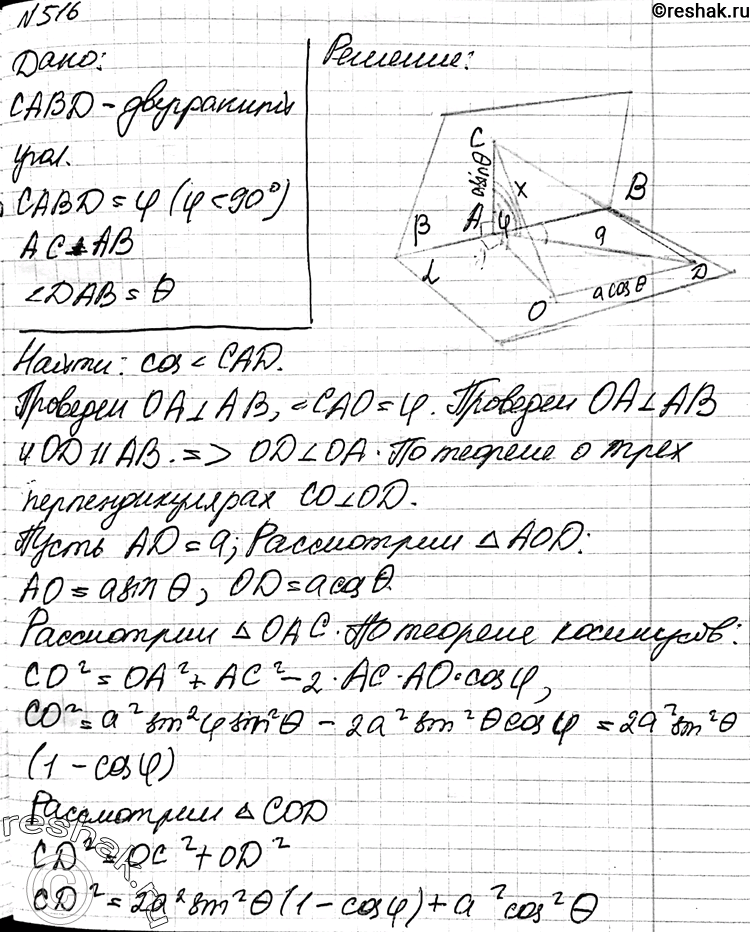 ©reshak.ru
N516
Дано:
Решение:
CABD – двугранный
угол.
CABD = φ (φ < 90°)
AC ⊥ AB
∠DAB = θ
C
asinθ
x
B
A
φ
β
a
L
D
O
a cosθ
Найти: cos ∠ CAD.
Проведем OA ⊥ AB, ∠CAO = φ. Проведем OA ⊥ AB
и OD || AB. => OD ⊥ OA. По теореме о трех
перпендикулярах CO ⊥ OD.
Пусть AD = a; Рассмотрим △ AOD:
AO = a sin θ, OD = a cos θ.
Рассмотрим △ OAC. По теореме косинусов:
CO² = OA² + AC² – 2 · AC · AO · cos φ,
CO² = a² sin² φ sin² θ – 2a² sin² θ cos φ = 2a² sin² θ
(1 – cos φ)
Рассмотрим △ COD
CD² = OC² + OD²
CD² = 2a² sin² θ (1 – cos φ) + a² cos² θ
reshak.ru